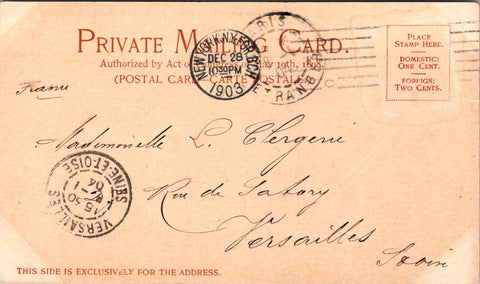 PRIVATE MAILING CARD.
Authorized by Act of May 19th, 1898.
(POSTAL CARD CARTE POSTALE.)
PLACE
STAMP HERE.
DOMESTIC:
ONE CENT.
FOREIGN:
TWO CENTS.
NEW YORK, N.Y. FOR. BCH
DEC 28
10 30 PM
1903
PARIS
ETRANGER
France
Mademoiselle L. Clergerie
Rue de Satory
Versailles
VERSAILLES
15 30
-1
04
SEINE-ET-OISE
THIS SIDE IS EXCLUSIVELY FOR THE ADDRESS.